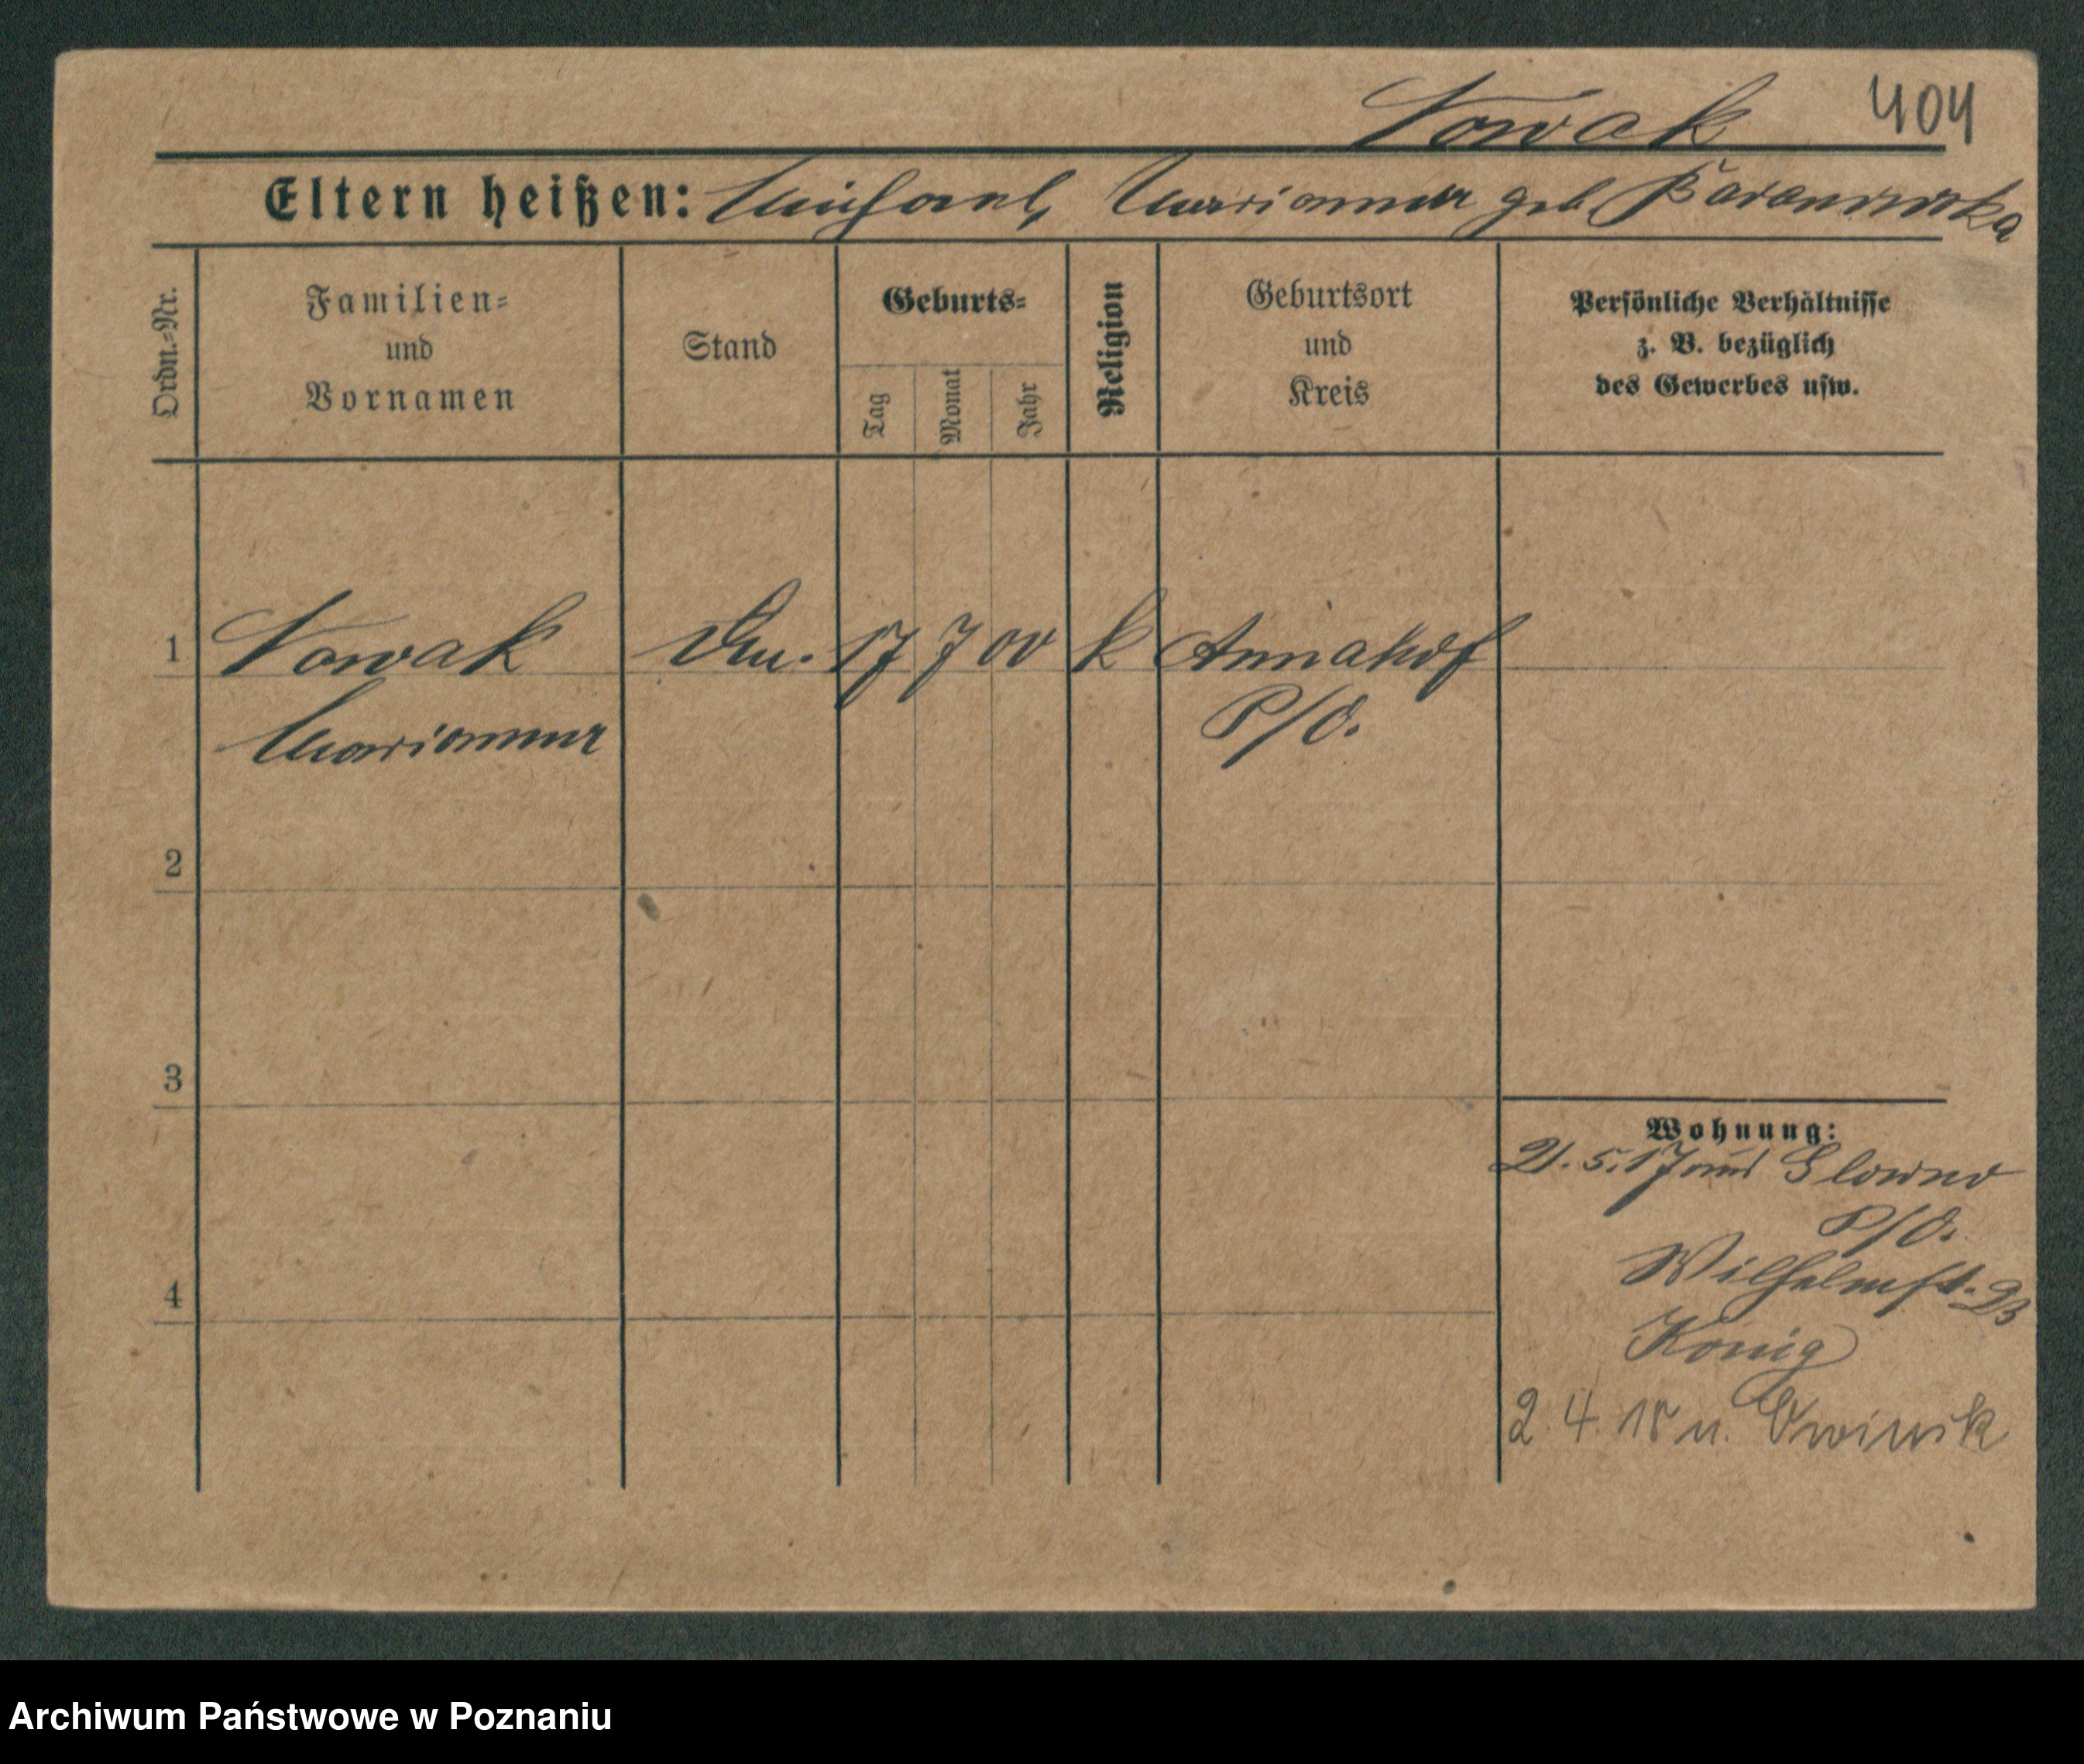 Nowak 404
Eltern heißen: Michael, Marianna geb. Baranowska
Ordn.-Nr.
Familien-
und
Vornamen
Stand
Geburts-
Tag
Monat
Jahr
Religion
Geburtsort
und
Kreis
Persönliche Verhältnisse
z. B. bezüglich
des Gewerbes usw.
1 Nowak 17 7 00 k Annahof
Marianna P/O.
2
3
4
Wohnung:
21.5.17 Glowno
P/O.
Wilhelmst. 23
König
2.4.18 n. Owinsk
Archiwum Państwowe w Poznaniu